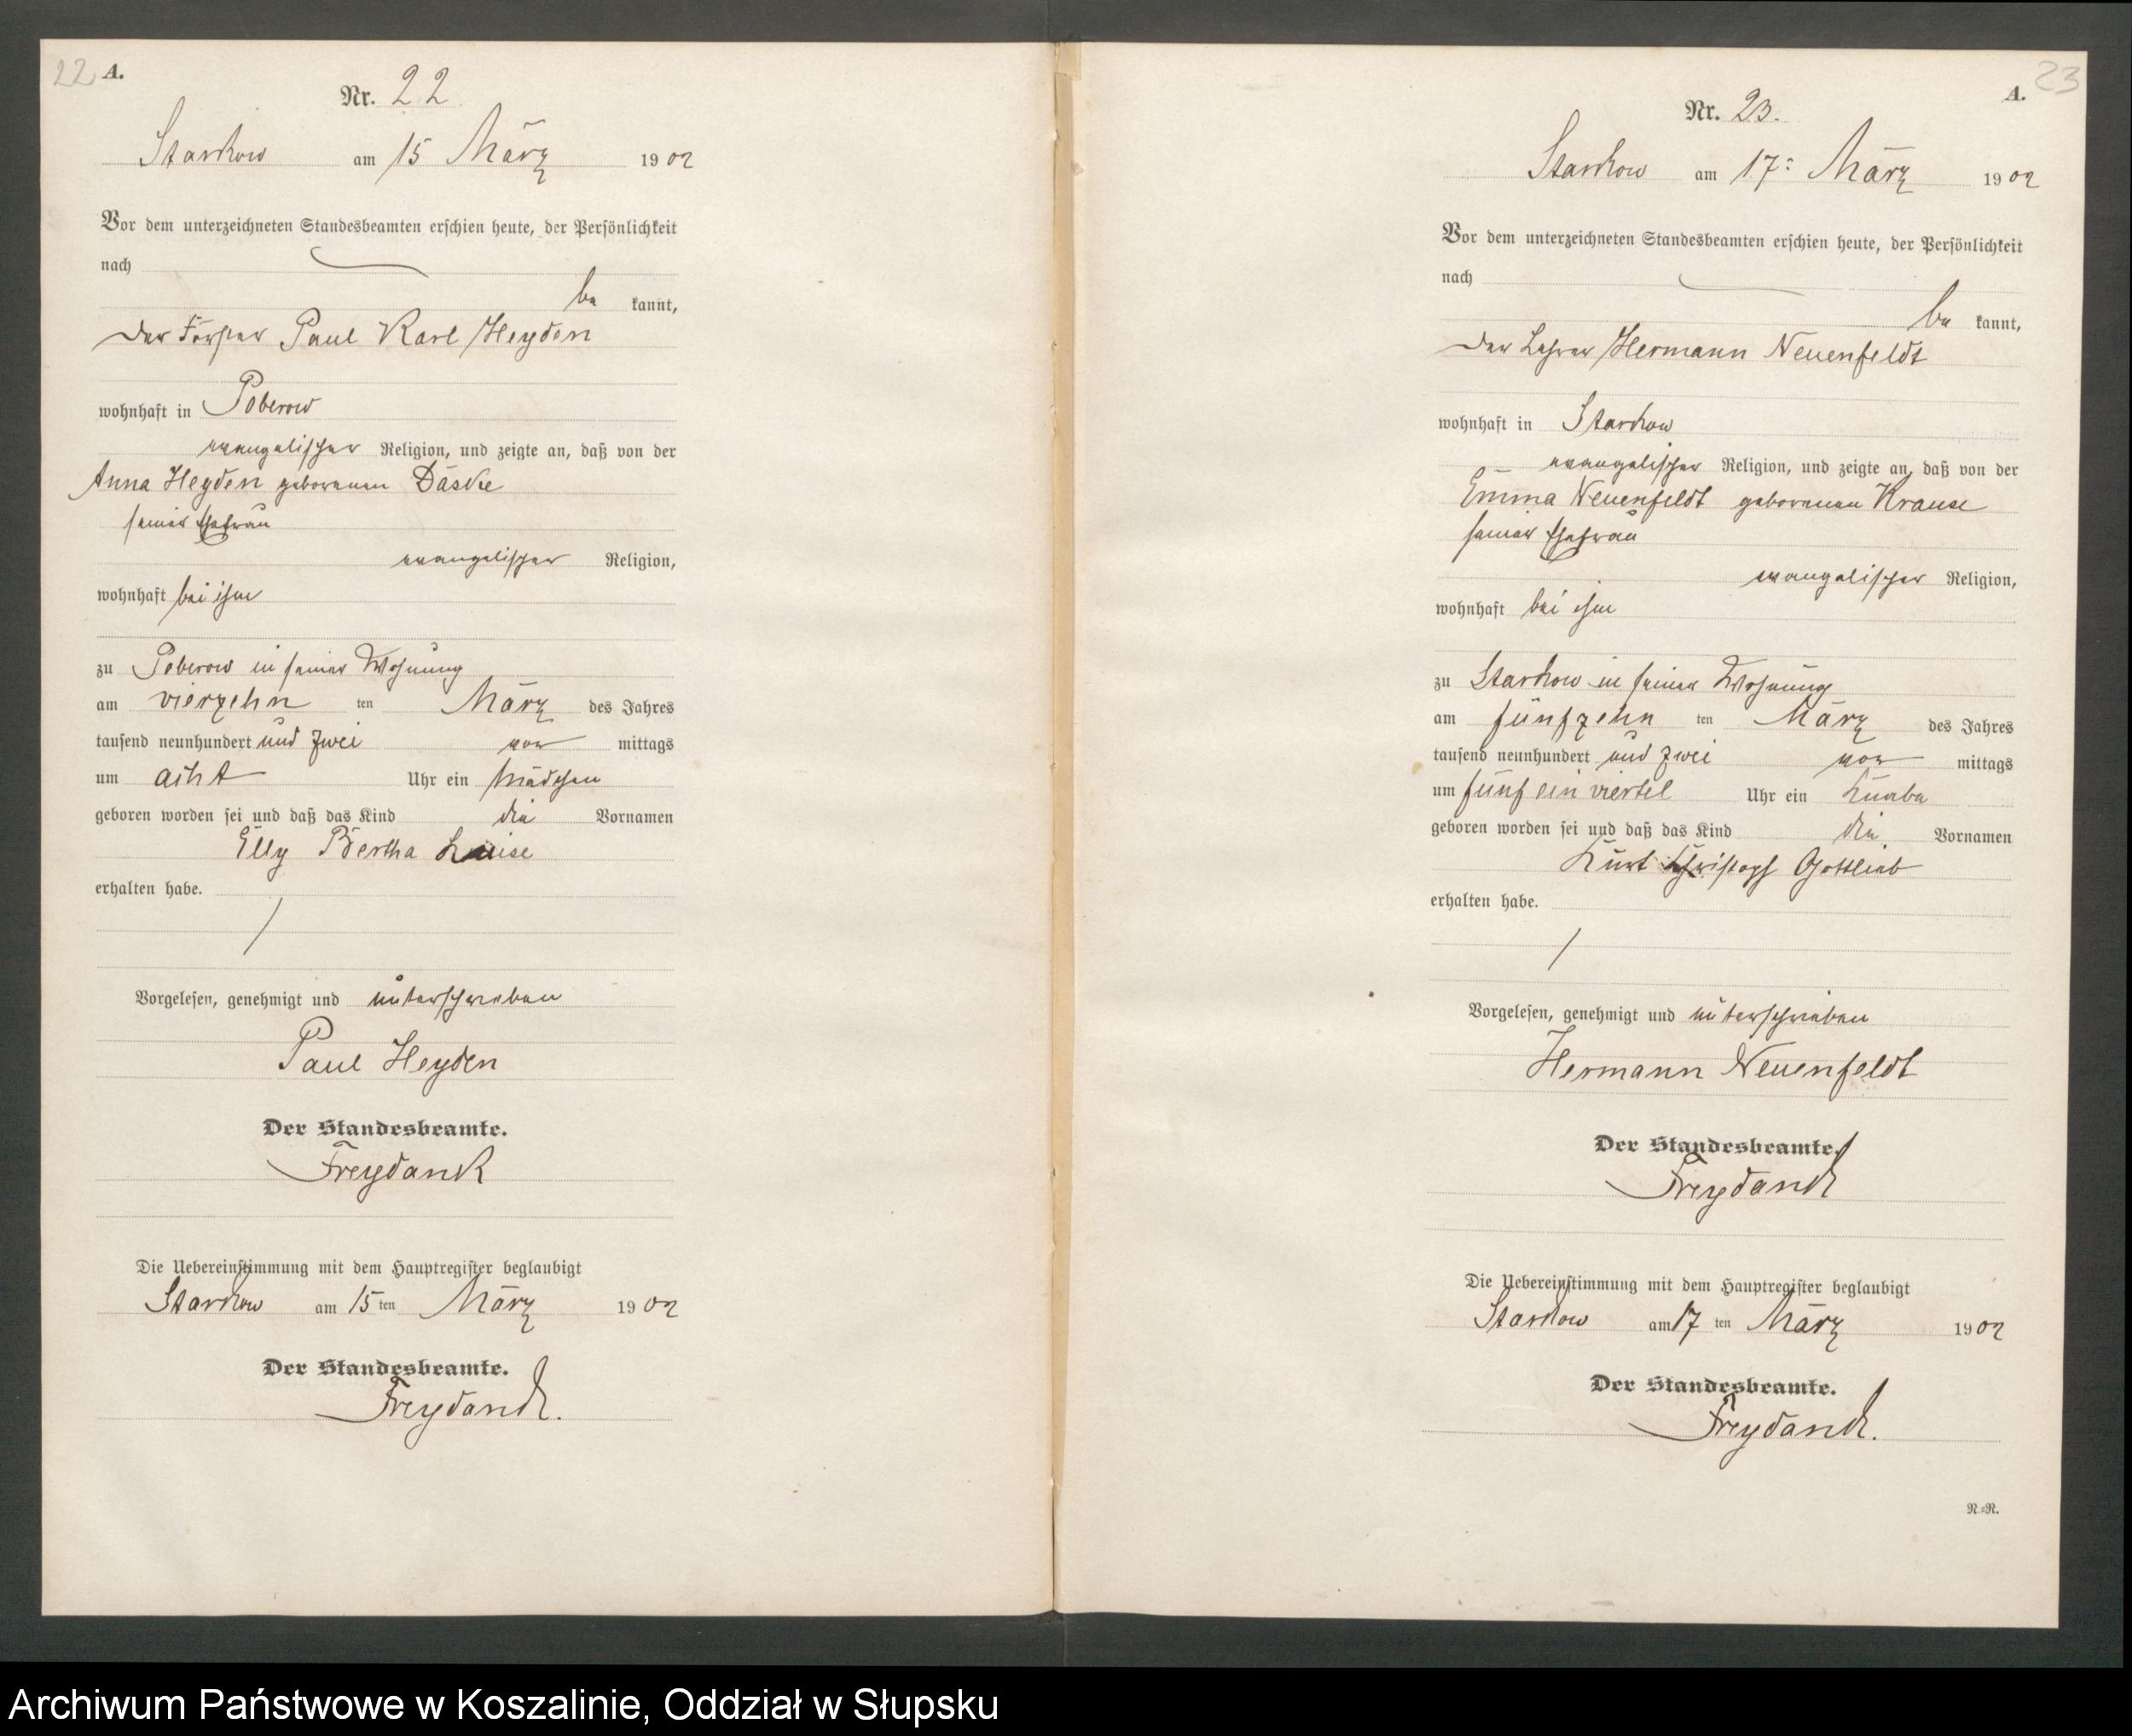 22 A.
Nr. 22
Starkow am 15 März 1902
Vor dem unterzeichneten Standesbeamten erschien heute, der Persönlichkeit
nach
be kannt,
der Förster Paul Karl Heyden
wohnhaft in Poberow
evangelischer Religion, und zeigte an, daß von der
Anna Heyden geborenen Däske
seiner Ehefrau
evangelischer Religion,
wohnhaft bei ihm
zu Poberow in seiner Wohnung
am vierzehn ten März des Jahres
tausend neunhundert und zwei vor mittags
um acht Uhr ein Mädchen
geboren worden sei und daß das Kind die Vornamen
Elly Bertha Luise
erhalten habe.
Vorgelesen, genehmigt und unterschrieben
Paul Heyden
Der Standesbeamte.
Freydank
Die Uebereinstimmung mit dem Hauptregister beglaubigt
Starkow am 15 ten März 1902
Der Standesbeamte.
Freydank.
A. 23
Nr. 23.
Starkow am 17: März 1902
Vor dem unterzeichneten Standesbeamten erschien heute, der Persönlichkeit
nach
be kannt,
der Lehrer Hermann Neuenfeldt
wohnhaft in Starkow
evangelischer Religion, und zeigte an, daß von der
Emma Neuenfeldt geborenen Krause
seiner Ehefrau
evangelischer Religion,
wohnhaft bei ihm
zu Starkow in seiner Wohnung
am fünfzehn ten März des Jahres
tausend neunhundert und zwei vor mittags
um fünf ein viertel Uhr ein Knabe
geboren worden sei und daß das Kind die Vornamen
Kurt Christoph Gottlieb
erhalten habe.
Vorgelesen, genehmigt und unterschrieben
Hermann Neuenfeldt
Der Standesbeamte.
Freydank
Die Uebereinstimmung mit dem Hauptregister beglaubigt
Starkow am 17 ten März 1902
Der Standesbeamte.
Freydank.
N.-N.
Archiwum Państwowe w Koszalinie, Oddział w Słupsku